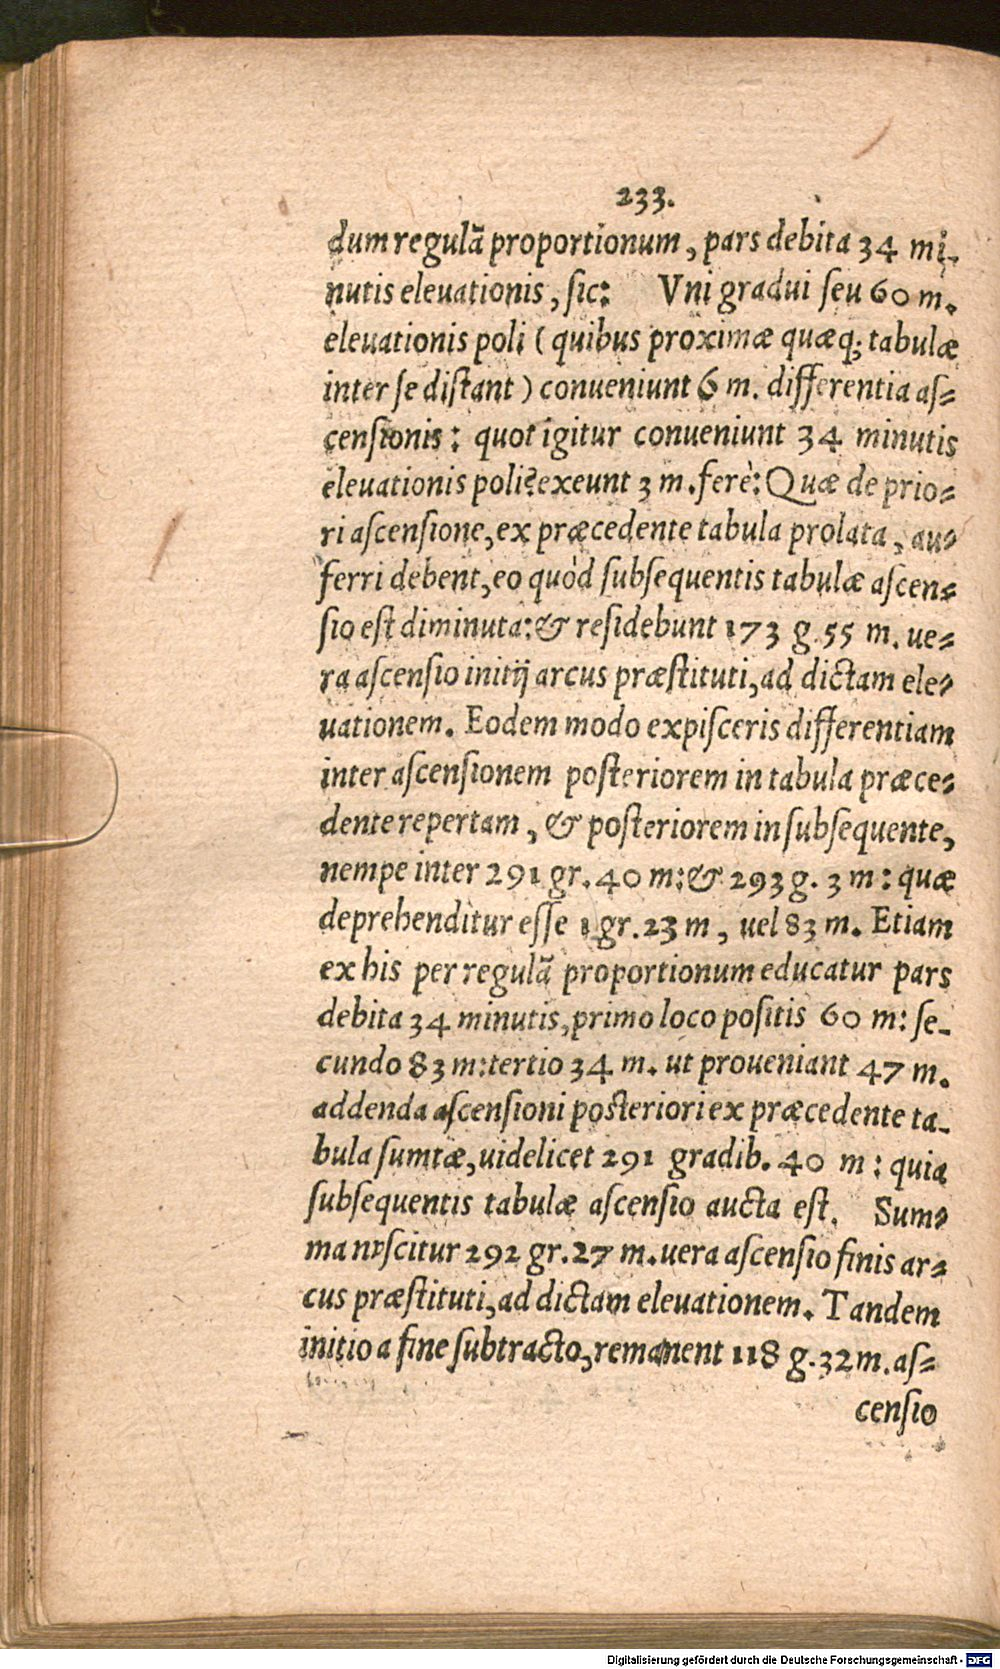 233.
dum regulã proportionum, pars debita 34 mi-
nutis eleuationis, ſic: Vni gradui ſeu 60 m.
eleuationis poli (quibus proximæ quæq; tabulæ
inter ſe diſtant) conueniunt 6 m. differentia aſ-
cenſionis: quot igitur conueniunt 34 minutis
eleuationis poli? exeunt 3 m. ferè: Quæ de prio-
ri aſcenſione, ex præcedente tabula prolata, au-
ferri debent, eo quòd ſubſequentis tabulæ aſcen-
ſio eſt diminuta: & reſidebunt 173 g. 55 m. ue-
ra aſcenſio initij arcus præſtituti, ad dictam ele-
uationem. Eodem modo expiſceris differentiam
inter aſcenſionem poſteriorem in tabula præce-
dente repertam, & poſteriorem in ſubſequente,
nempe inter 291 gr. 40 m: & 293 g. 3 m: quæ
deprehenditur eſſe 1 gr. 23 m, uel 83 m. Etiam
ex his per regulã proportionum educatur pars
debita 34 minutis, primo loco poſitis 60 m: ſe-
cundo 83 m: tertio 34 m. ut proueniant 47 m.
addenda aſcenſioni poſteriori ex præcedente ta-
bula ſumtæ, uidelicet 291 gradib. 40 m: quia
ſubſequentis tabulæ aſcenſio aucta eſt. Sum-
ma naſcitur 292 gr. 27 m. uera aſcenſio finis ar-
cus præſtituti, ad dictam eleuationem. Tandem
initio a fine ſubtracto, remanent 118 g. 32 m. aſ-
cenſio
Digitalisierung gefördert durch die Deutsche Forschungsgemeinschaft - DFG